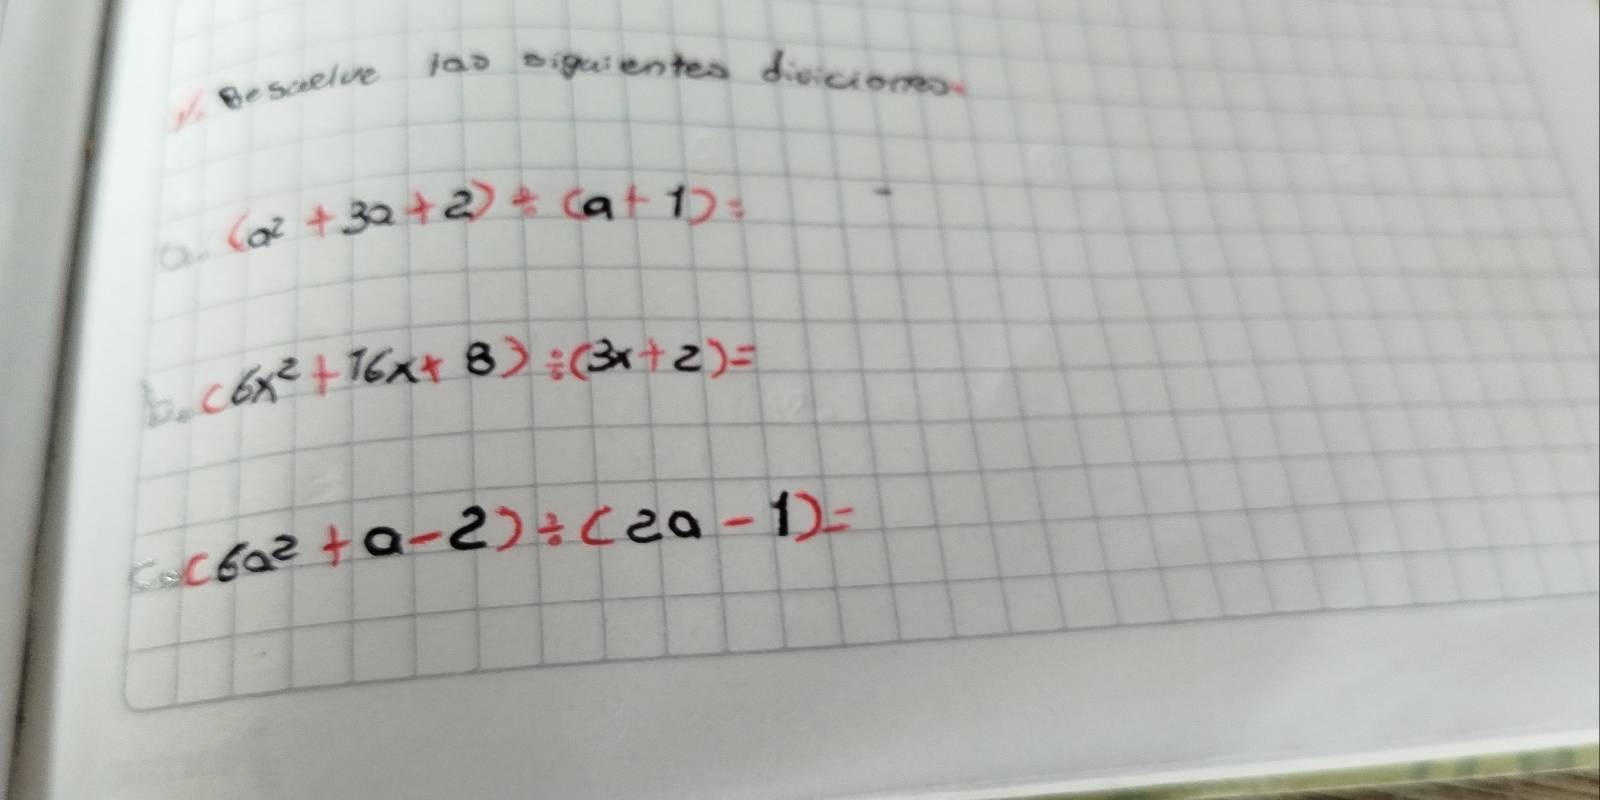 1. Resuelve las siguientes diviciones.
a. (a² + 3a + 2) ÷ (a + 1) =
b. (6x² + 16x + 8) ÷ (3x + 2) =
c. (6a² + a - 2) ÷ (2a - 1) =